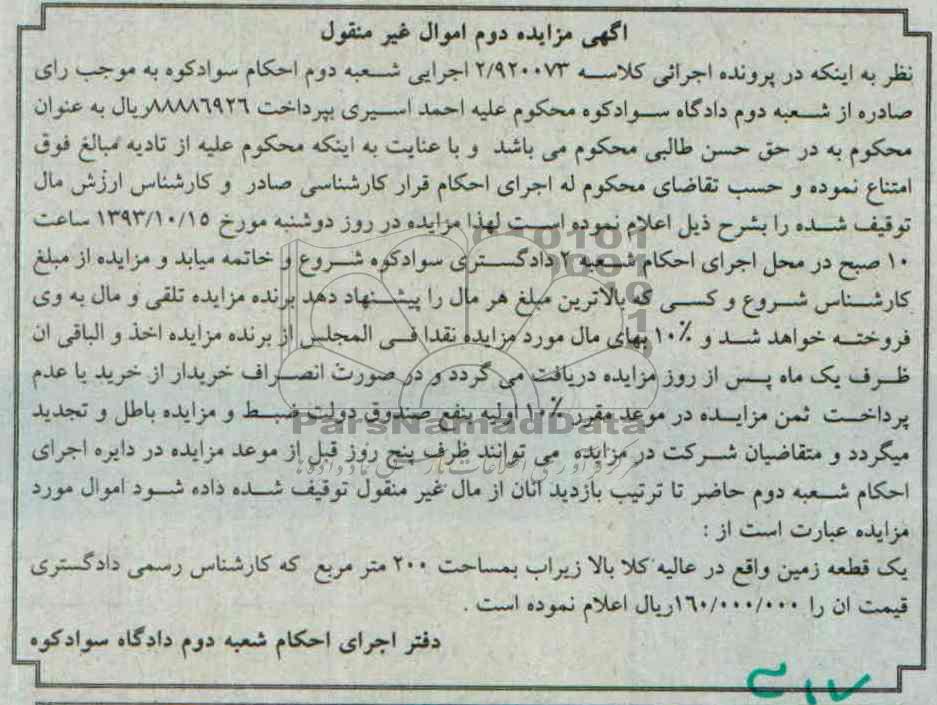 اگهی مزایده دوم اموال غیر منقول
نظر به اینکه در پرونده اجرائی کلاسه ۲/۹۲۰۰۷۳ اجرایی شعبه دوم احکام سوادکوه به موجب رای
صادره از شعبه دوم دادگاه سوادکوه محکوم علیه احمد اسیری بپرداخت ۸۸۸۸۶۹۲۶ریال به عنوان
محکوم به در حق حسن طالبی محکوم می باشد و با عنایت به اینکه محکوم علیه از تادیه مبالغ فوق
امتناع نموده و حسب تقاضای محکوم له اجرای احکام قرار کارشناسی صادر و کارشناس ارزش مال
توقیف شده را بشرح ذیل اعلام نموده است لهذا مزایده در روز دوشنبه مورخ ۱۳۹۳/۱۰/۱۵ ساعت
۱۰ صبح در محل اجرای احکام شعبه ۲ دادگستری سوادکوه شروع و خاتمه میابد و مزایده از مبلغ
کارشناس شروع و کسی که بالاترین مبلغ هر مال را پیشنهاد دهد برنده مزایده تلقی و مال به وی
فروخته خواهد شد و ۱۰٪ بهای مال مورد مزایده نقدا فی المجلس از برنده مزایده اخذ و الباقی ان
ظرف یک ماه پس از روز مزایده دریافت می گردد و در صورت انصراف خریدار از خرید یا عدم
پرداخت ثمن مزایده در موعد مقرر ۱۰٪ اولیه بنفع صندوق دولت ضبط و مزایده باطل و تجدید
میگردد و متقاضیان شرکت در مزایده می توانند ظرف پنج روز قبل از موعد مزایده در دایره اجرای
احکام شعبه دوم حاضر تا ترتیب بازدید انان از مال غیر منقول توقیف شده داده شود اموال مورد
مزایده عبارت است از :
یک قطعه زمین واقع در عالیه کلا بالا زیراب بمساحت ۲۰۰ متر مربع که کارشناس رسمی دادگستری
قیمت ان را ۱۶۰/۰۰۰/۰۰۰ریال اعلام نموده است .
دفتر اجرای احکام شعبه دوم دادگاه سوادکوه
ParsNamadData